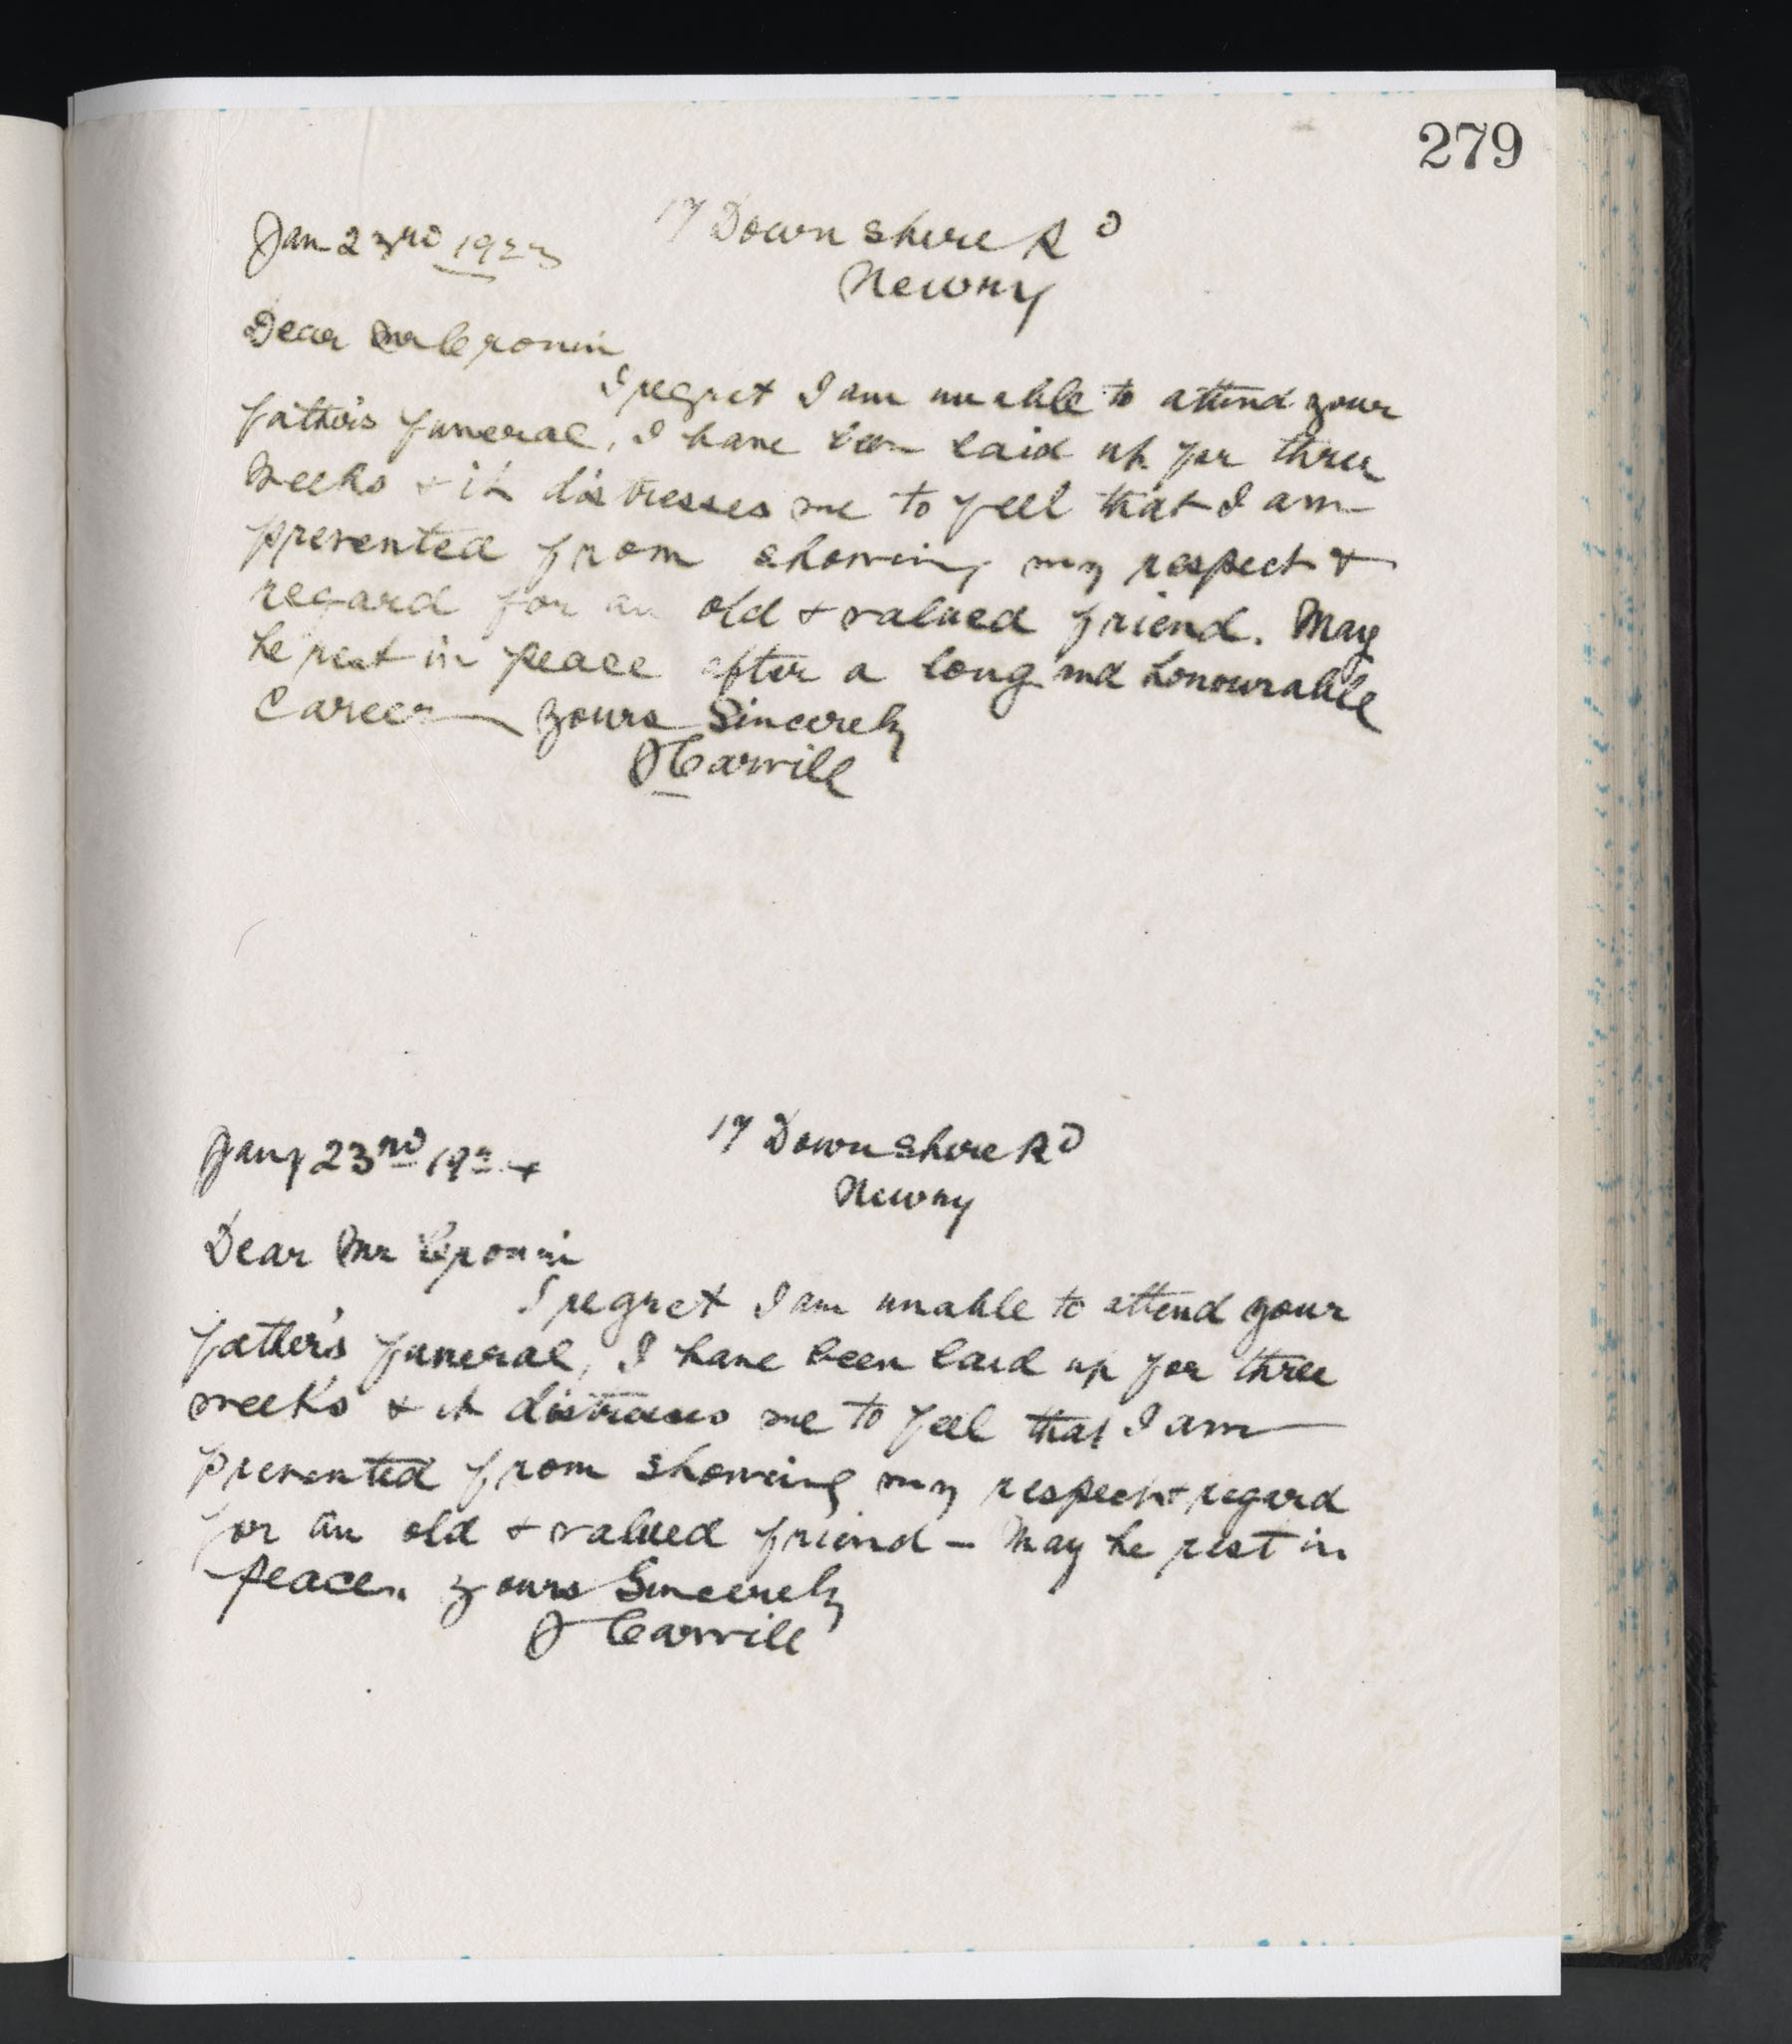 279
17 Downshire Rd
Jan 23rd 1923
Newry
Dear Mr Cronin
I regret I am unable to attend your
father's funeral, I have been laid up for three
weeks & it distresses me to feel that I am
prevented from showing my respect &
regard for an old & valued friend. May
he rest in peace after a long and honourable
career yours Sincerely
J Carvill
17 Downshire Rd
Jany 23rd
Newry
Dear Mr Cronin
I regret I am unable to attend your
father's funeral, I have been laid up for three
weeks & it distresses me to feel that I am
prevented from showing my respect & regard
for an old & valued friend - May he rest in
peace. yours Sincerely
J Carvill